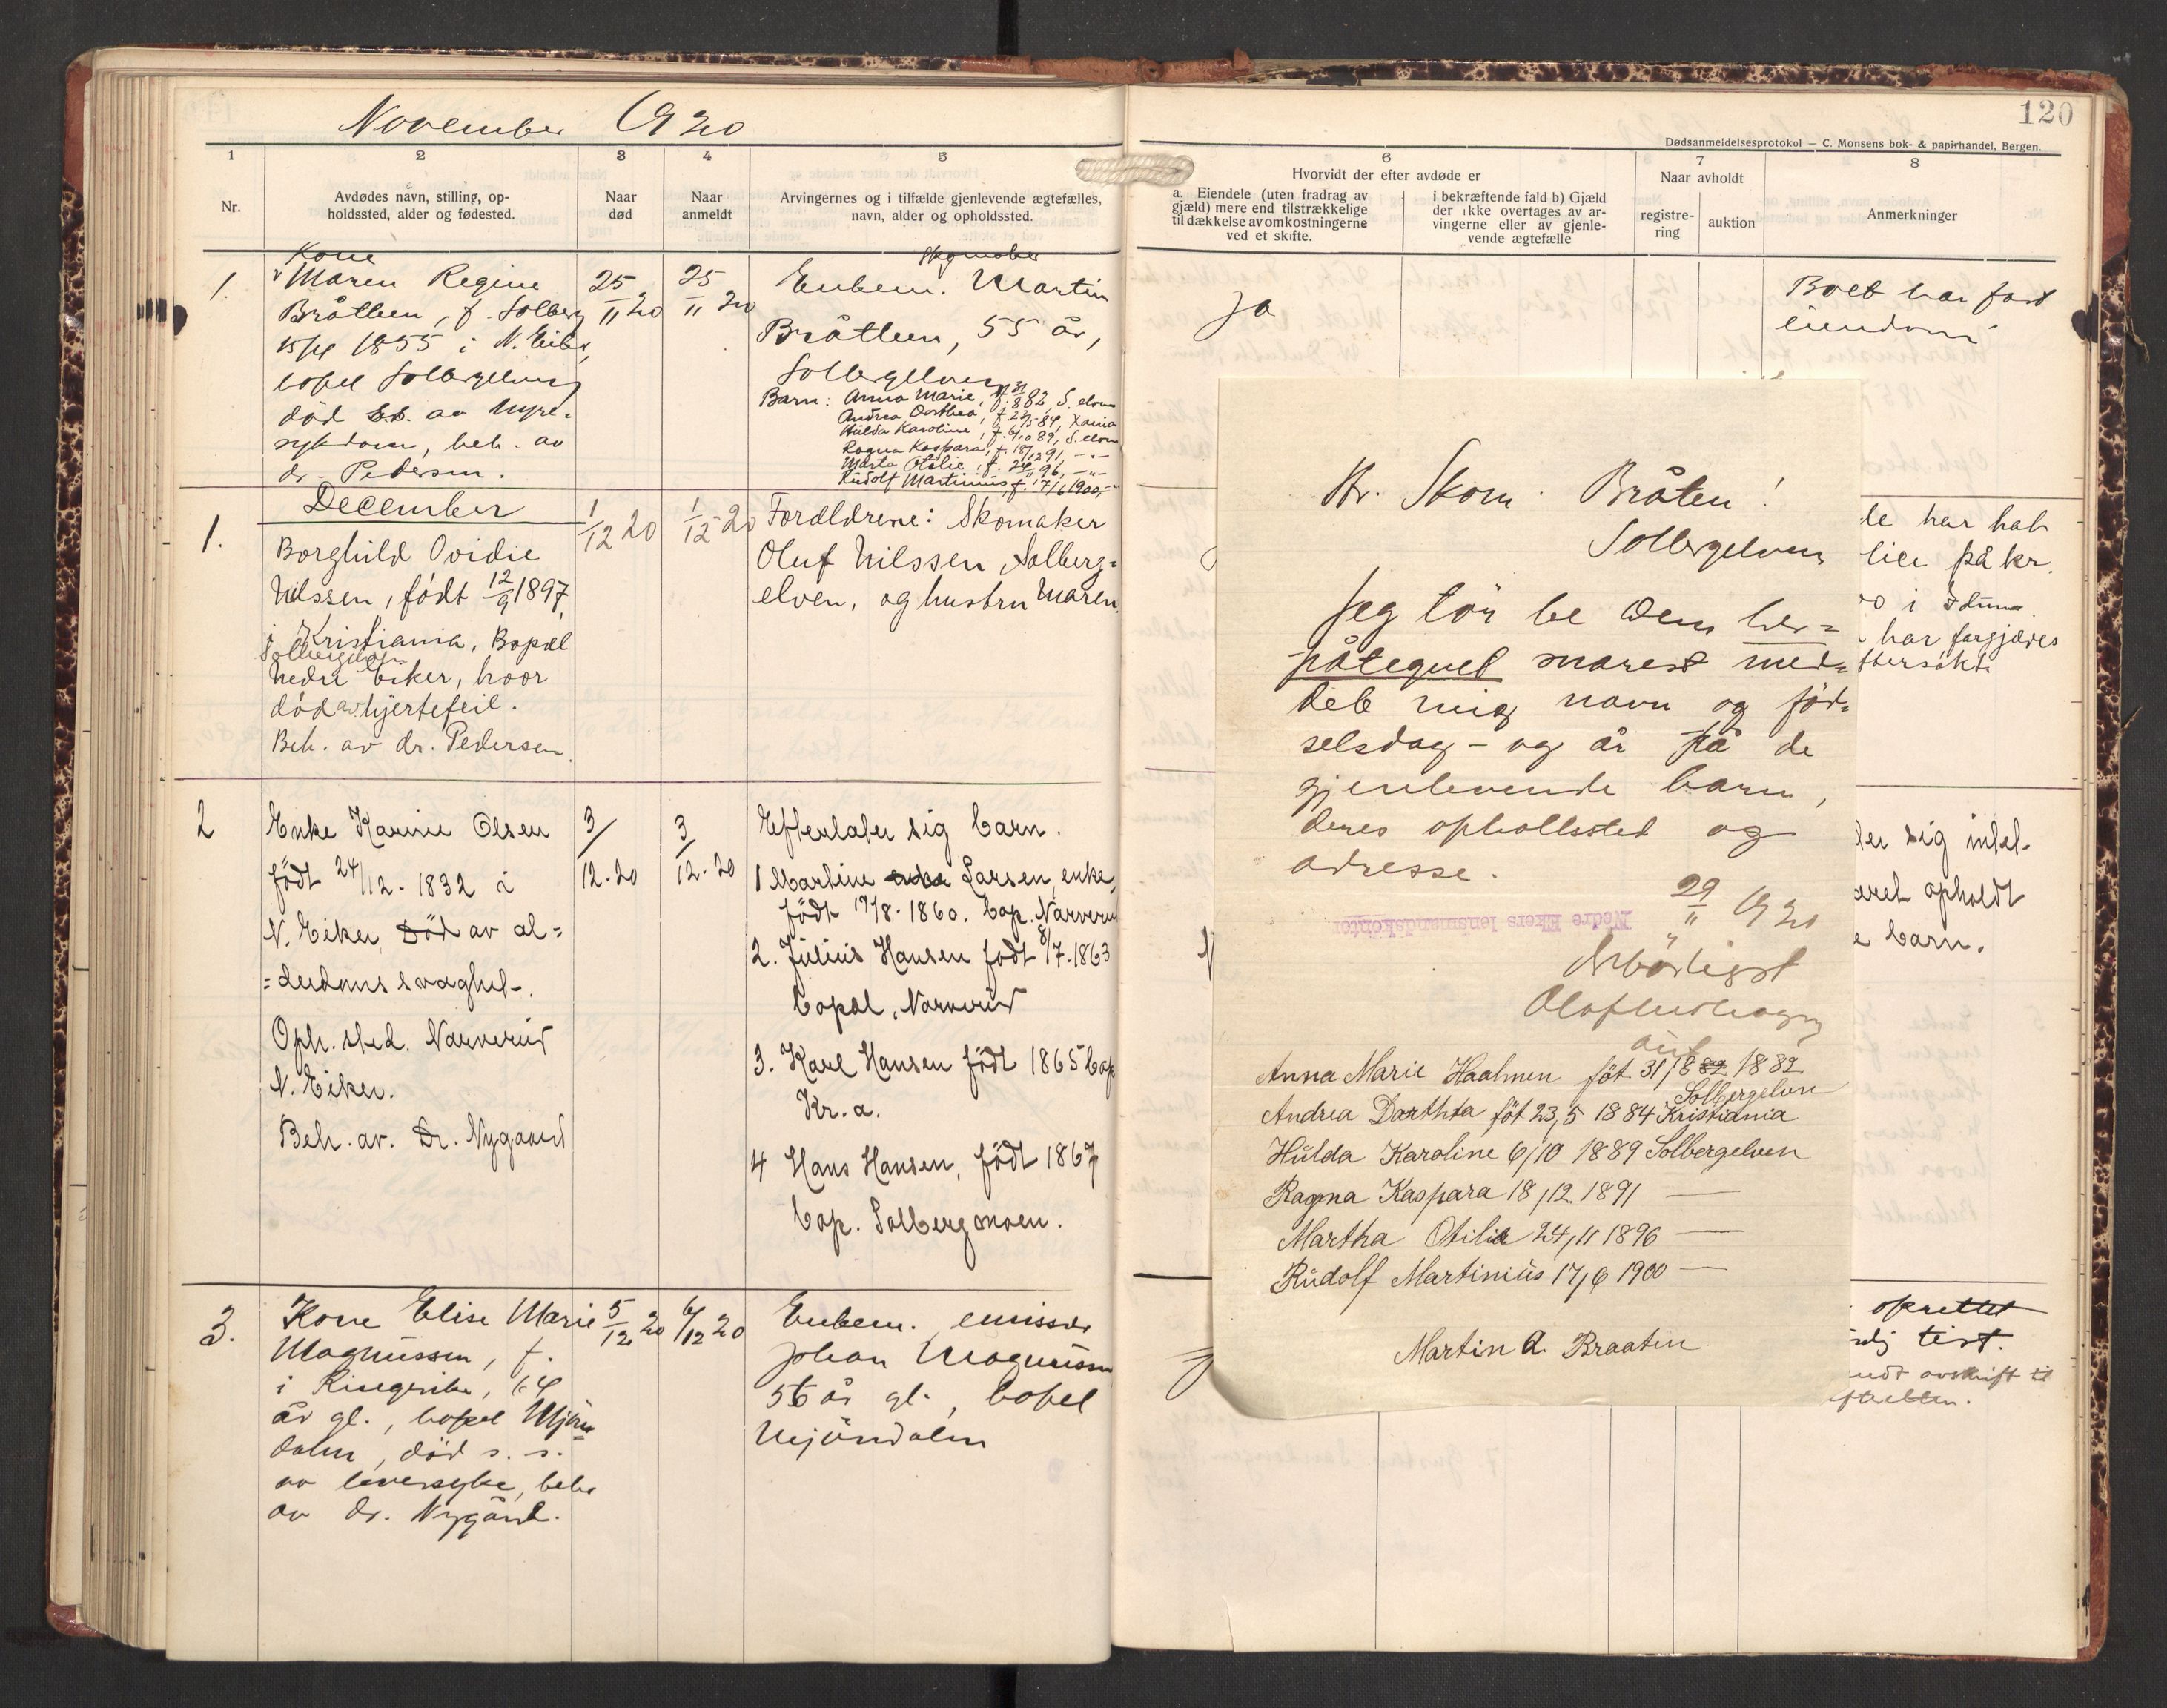 November 1920
120
Dødsanmeldelsesprotokol — C. Monsens bok- & papirhandel, Bergen.
1
2
3
4
5
6
7
8
Nr.
Avdødes navn, stilling, op-
holdssted, alder og fødested.
Naar
død
Naar
anmeldt
Arvingernes og i tilfælde gjenlevende ægtefælles,
navn, alder og opholdssted.
Hvorvidt der efter avdøde er
a. Eiendele (uten fradrag av
gjæld) mere end tilstrækkelige
til dækkelse av omkostningerne
ved et skifte.
i bekræftende fald b) Gjæld
der ikke overtages av ar-
vingerne eller av gjenle-
vende ægtefælle
Naar avholdt
registre-
ring
auktion
Anmerkninger
1.
Kone
Maren Regine
Bråtleen, f. Solberg
15/4 1855 i N. Eiker,
bopel Solbergelven,
död s.s. av nyre-
sykdom, beh. av
dr. Pedersen.
25/11 20
25/11 20
Skomaker
Enkem. Martin
Bråtleen, 55 år,
Solbergelven
Barn: Anna Marie, f. 31/8 82, S.elven
Andrea Dorthea, f. 23/5 84, Xania
Hulda Karoline, f. 6/10 89, S.elven
Ragna Kaspara, f. 18/12 91, -"-
Marta Otilie, f. 24/11 96, -"-
Rudolf Martinius, f. 17/6 1900, -"-
ja
Boet har fast
eiendom
December
1.
Borghild Ovidie
Nilssen, født 12/9 1897
i Kristiania, Bopæl
Solbergelven
Nedre Eiker, hvor
død av hjertefeil.
Beh. av dr. Pedersen.
1/12 20
1/12 20
Foreldrene: Skomaker
Oluf Nilssen, Solberg=
elven, og hustru Maren.
de har hat
lien på kr.
00 i Iduna.
har forgjæves
ftersökt
2
Enke Karine Olsen
født 24/12. 1832 i
N. Eiker, Død av al=
=derdomssvaghet-.
Oph. sted. Narverud
N. Eiker.
Beh. av. Dr. Nygaard
3/12. 20
3/12. 20
Efterlater sig barn.
1 Martine enke Larsen, enke,
født 19/8. 1860. bop. Narverud
2. Julius Hansen født 8/7. 1863
bopæl, Narverud
3. Karl Hansen født 1865 bop
Kr.a.
4 Hans Hansen, født 1867
bop. Solbergmoen.
der sig intet-
aret opholdt
e barn.
3.
Kone Elise Marie
Magnussen, f.
i Ringerike, 64
år gl., bopel Mjön-
dalen, död s. s.
av leversyke, beh.
av dr. Nygård.
5/12 20
6/12 20
Enkem. emissær
Johan Magnussen
56 år gl., bopel
Mjöndalen
oprettet
test.
sendt avskrift til
Hr. Skom. Bråten!
Solbergelven
Jeg tör be Dem her=
påtegnet snarest med=
dele mig navn og föd=
selsdag - og år på de
gjenlevende barn,
deres opholdssted og
adresse.
29/11 1920
Nedre Ekers lensmandskontor
Ærbödigst
Anna Marie Haalmen föt 31/8 82 1882
Solbergelven
Andrea Darthea föt 23/5 1884 Kristiania
Hulda Karoline 6/10 1889 Solbergelven
Ragna Kaspara 18/12 1891 —
Martha Otilie 24/11 1896 —
Rudolf Martinius 17/6 1900 —
Martin A. Braaten